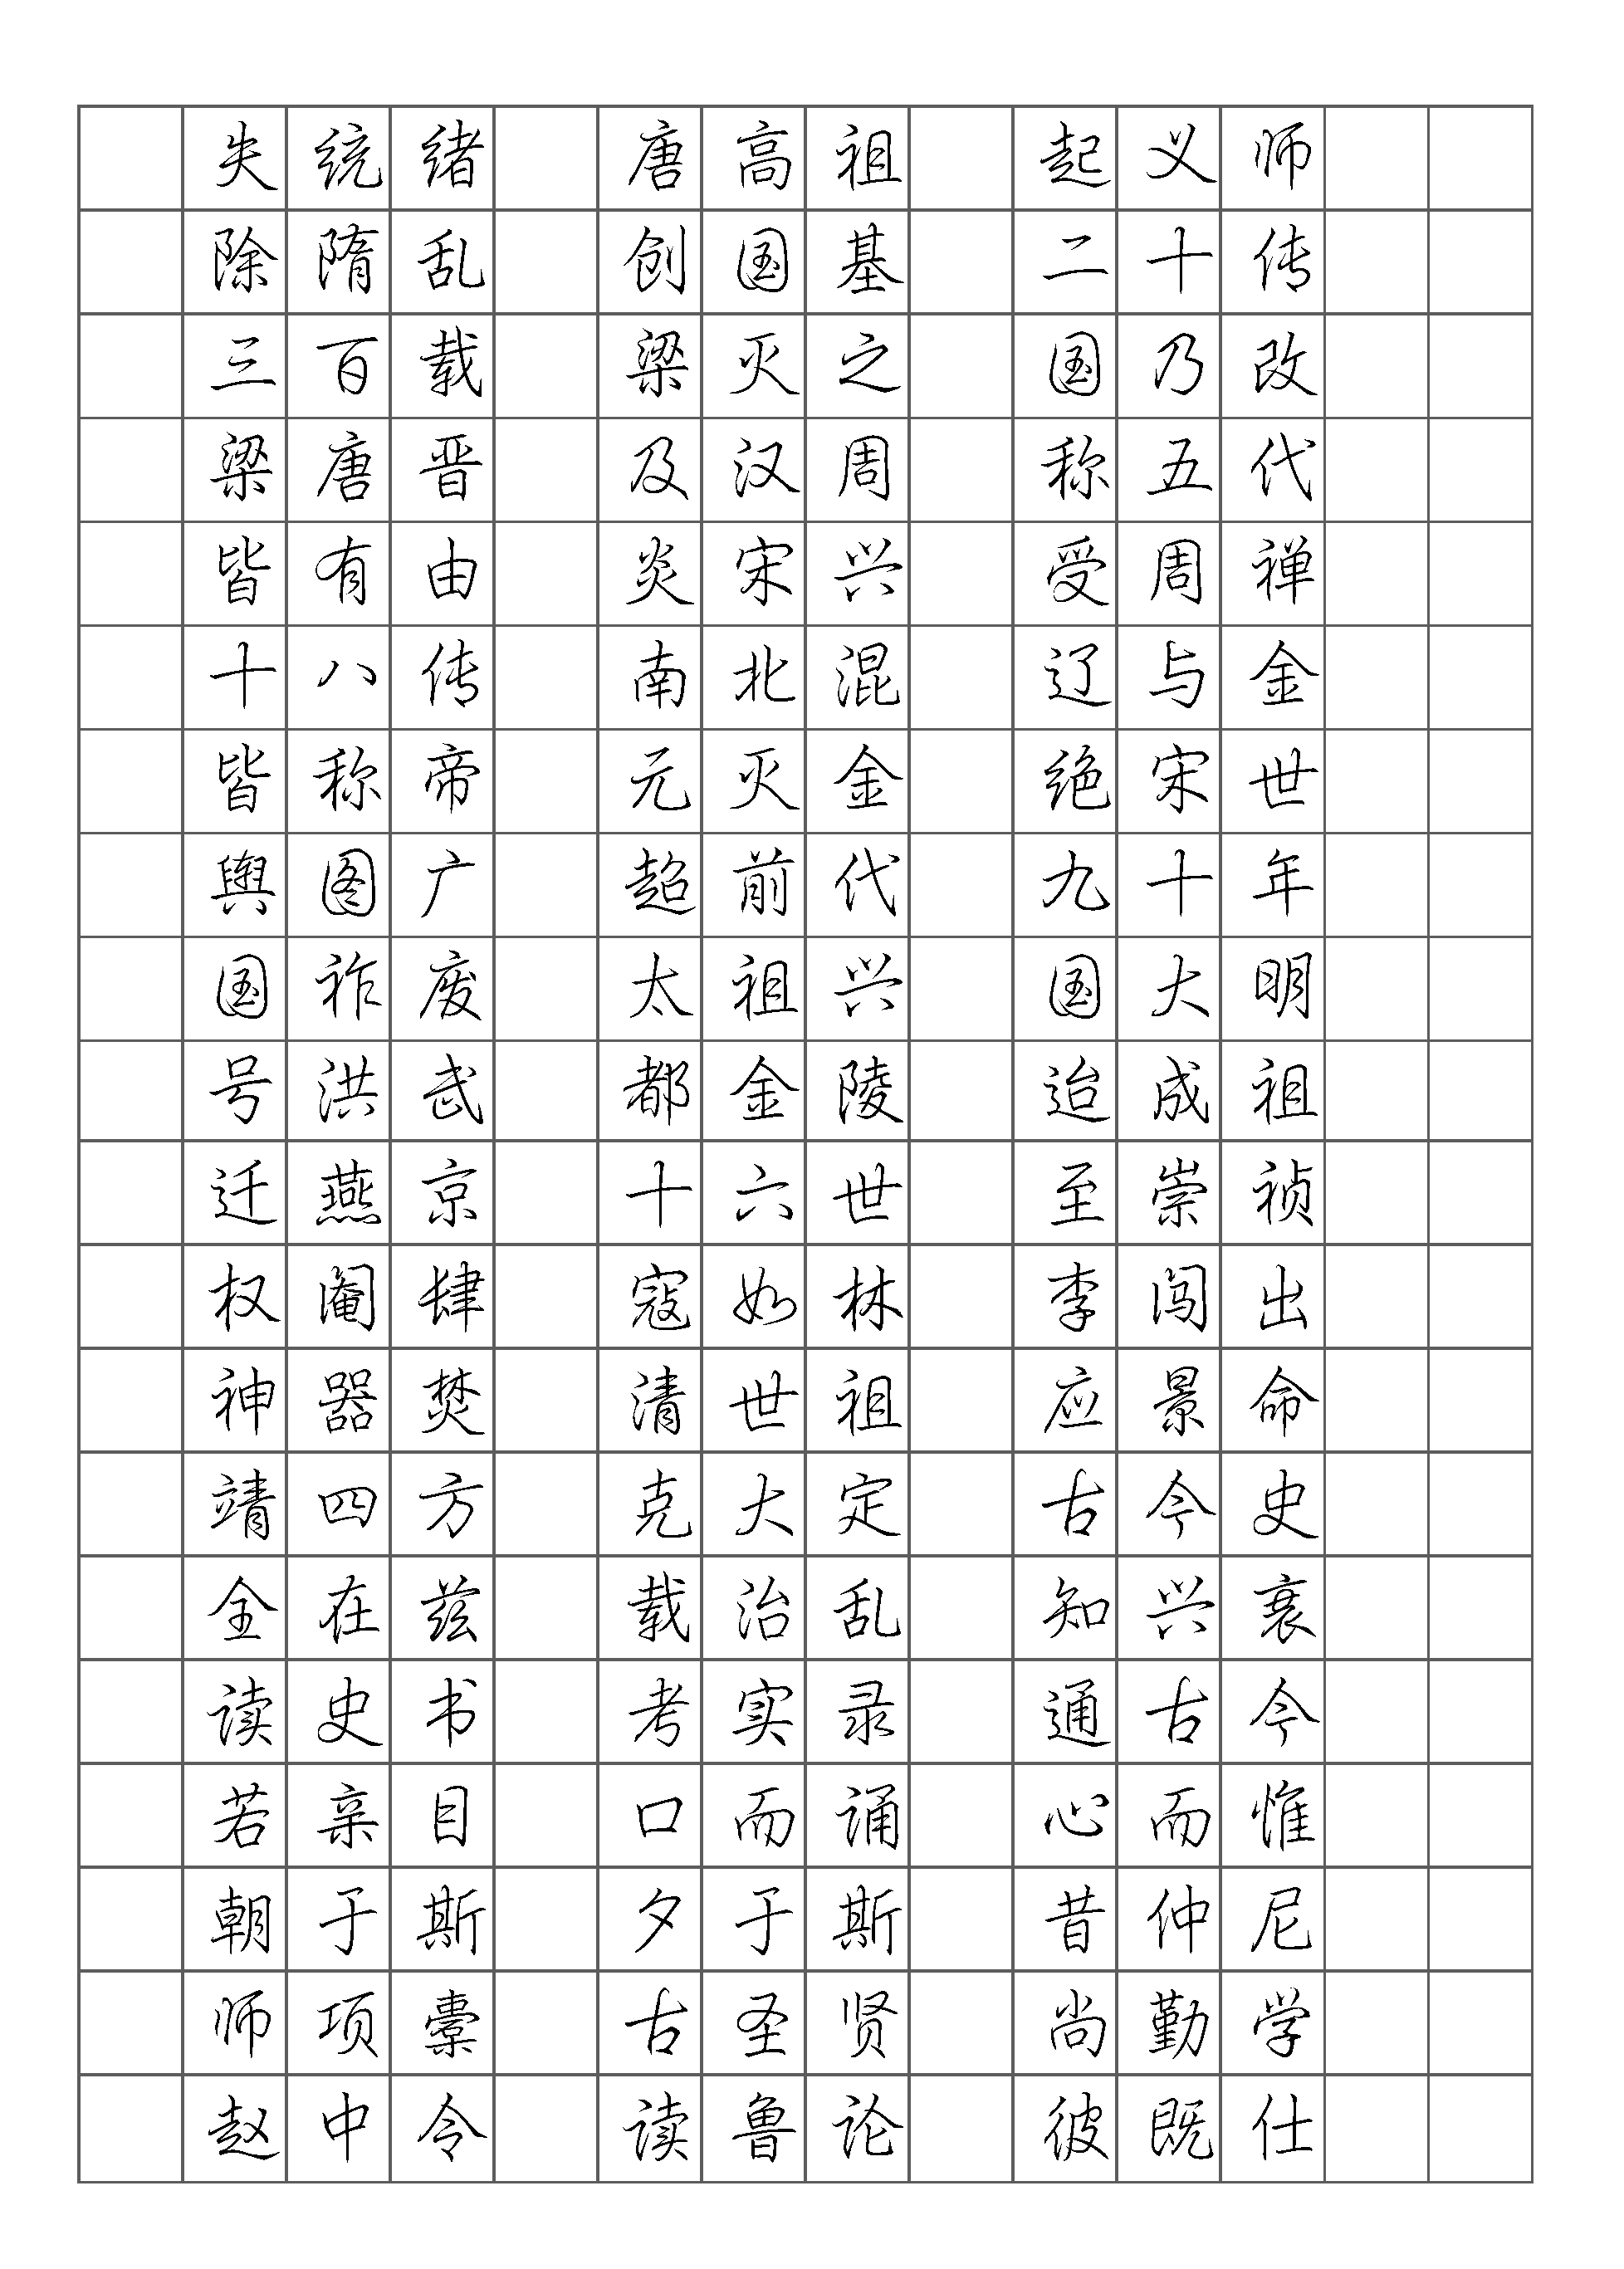 失统绪 唐高祖 起义师
除隋乱 创国基 二十传
三百载 梁灭之 国乃改
梁唐晋 及汉周 称五代
皆有由 炎宋兴 受周禅
十八传 南北混 辽与金
皆称帝 元灭金 绝宋世
舆图广 超前代 九十年
国祚废 太祖兴 国大明
号洪武 都金陵 迨成祖
迁燕京 十六世 至崇祯
权阉肆 寇如林 李闯出
神器焚 清世祖 应景命
靖四方 克大定 古今史
全在兹 载治乱 知兴衰
读史书 考实录 通古今
若亲目 口而诵 心而惟
朝于斯 夕于斯 昔仲尼
师项橐 古圣贤 尚勤学
赵中令 读鲁论 彼既仕